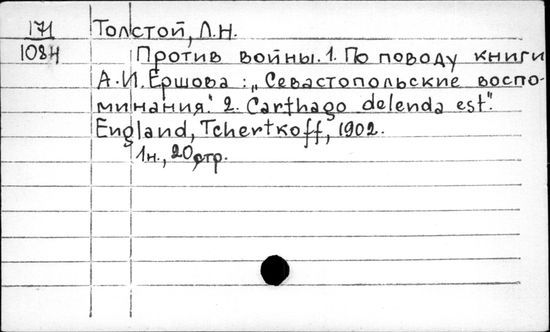 171 Толстой, Л.Н.
1084 Против войны. 1. По поводу книги
А.И. Ершова: „Севастопольские воспо-
минания." 2. Carthago delenda est".
England, Tchertkoff, 1902.
1н., 20 стр.